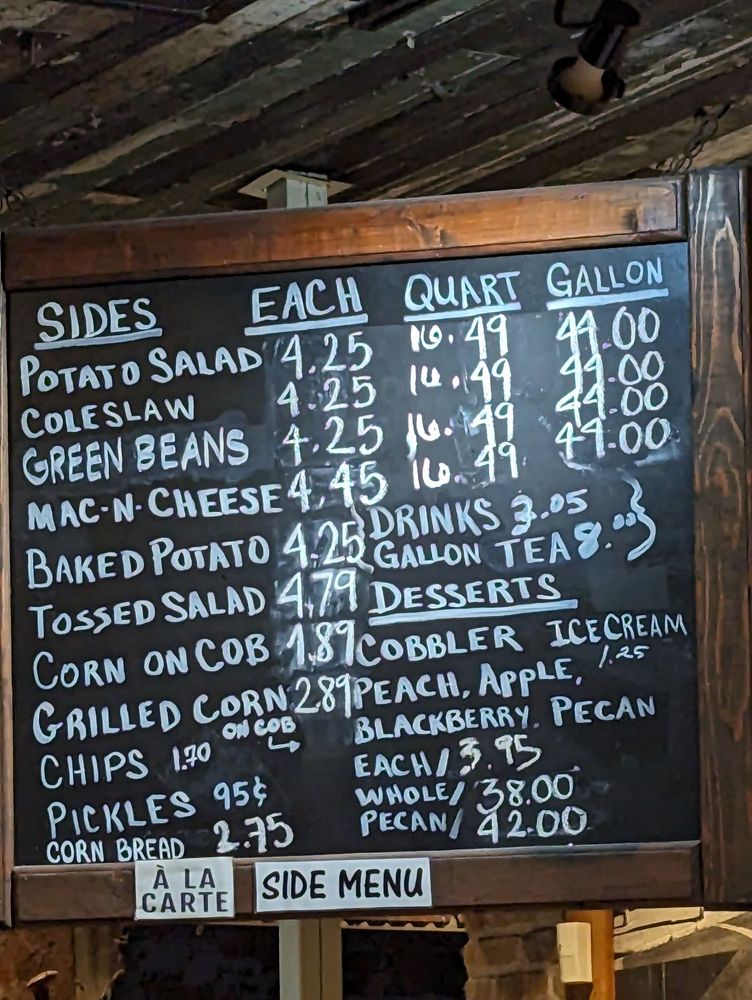 SIDES EACH QUART GALLON
POTATO SALAD 4.25 16.49 44.00
COLESLAW 4.25 16.49 44.00
GREEN BEANS 4.25 16.49 44.00
MAC-N-CHEESE 4.45 16.49 44.00
BAKED POTATO 4.25
TOSSED SALAD 4.79
CORN ON COB 1.89
GRILLED CORN 2.89
ON COB
CHIPS 1.70
PICKLES 95¢
CORN BREAD 2.75
DRINKS 3.05
GALLON TEA 8.00
DESSERTS
COBBLER ICE CREAM
1.25
PEACH, APPLE,
BLACKBERRY, PECAN
EACH/ 3.95
WHOLE/ 38.00
PECAN/ 42.00
À LA
CARTE
SIDE MENU